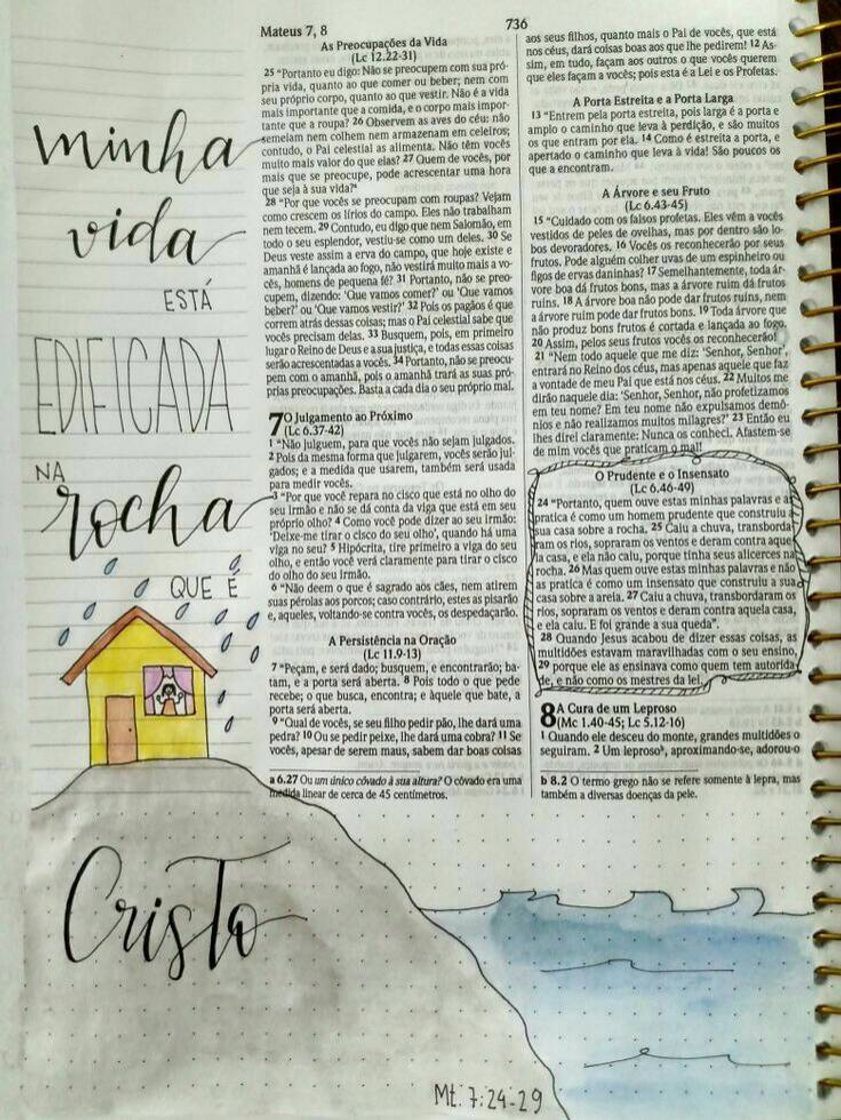 Mateus 7, 8
736
minha
vida
ESTÁ
EDIFICADA
NA
rocha
QUE É
Cristo
As Preocupações da Vida
(Lc 12.22-31)
25 “Portanto eu digo: Não se preocupem com sua pró-
pria vida, quanto ao que comer ou beber; nem com
seu próprio corpo, quanto ao que vestir. Não é a vida
mais importante que a comida, e o corpo mais impor-
tante que a roupa? 26 Observem as aves do céu: não
semeiam nem colhem nem armazenam em celeiros;
contudo, o Pai celestial as alimenta. Não têm vocês
muito mais valor do que elas? 27 Quem de vocês, por
mais que se preocupe, pode acrescentar uma hora
que seja à sua vida?ª
28 “Por que vocês se preocupam com roupas? Vejam
como crescem os lírios do campo. Eles não trabalham
nem tecem. 29 Contudo, eu digo que nem Salomão, em
todo o seu esplendor, vestiu-se como um deles. 30 Se
Deus veste assim a erva do campo, que hoje existe e
amanhã é lançada ao fogo, não vestirá muito mais a vo-
cês, homens de pequena fé? 31 Portanto, não se preo-
cupem, dizendo: ‘Que vamos comer?’ ou ‘Que vamos
beber?’ ou ‘Que vamos vestir?’ 32 Pois os pagãos é que
correm atrás dessas coisas; mas o Pai celestial sabe que
vocês precisam delas. 33 Busquem, pois, em primeiro
lugar o Reino de Deus e a sua justiça, e todas essas coisas
serão acrescentadas a vocês. 34 Portanto, não se preocu-
pem com o amanhã, pois o amanhã trará as suas pró-
prias preocupações. Basta a cada dia o seu próprio mal.
7 O Julgamento ao Próximo
(Lc 6.37-42)
1 “Não julguem, para que vocês não sejam julgados.
2 Pois da mesma forma que julgarem, vocês serão jul-
gados; e a medida que usarem, também será usada
para medir vocês.
3 “Por que você repara no cisco que está no olho do
seu irmão e não se dá conta da viga que está em seu
próprio olho? 4 Como você pode dizer ao seu irmão:
‘Deixe-me tirar o cisco do seu olho’, quando há uma
viga no seu? 5 Hipócrita, tire primeiro a viga do seu
olho, e então você verá claramente para tirar o cisco
do olho do seu irmão.
6 “Não deem o que é sagrado aos cães, nem atirem
suas pérolas aos porcos; caso contrário, estes as pisarão
e, aqueles, voltando-se contra vocês, os despedaçarão.
A Persistência na Oração
(Lc 11.9-13)
7 “Peçam, e será dado; busquem, e encontrarão; ba-
tam, e a porta será aberta. 8 Pois todo o que pede
recebe; o que busca, encontra; e àquele que bate, a
porta será aberta.
9 “Qual de vocês, se seu filho pedir pão, lhe dará uma
pedra? 10 Ou se pedir peixe, lhe dará uma cobra? 11 Se
vocês, apesar de serem maus, sabem dar boas coisas
a 6.27 Ou um único côvado à sua altura? O côvado era uma
medida linear de cerca de 45 centímetros.
aos seus filhos, quanto mais o Pai de vocês, que está
nos céus, dará coisas boas aos que lhe pedirem! 12 As-
sim, em tudo, façam aos outros o que vocês querem
que eles façam a vocês; pois esta é a Lei e os Profetas.
A Porta Estreita e a Porta Larga
13 “Entrem pela porta estreita, pois larga é a porta e
amplo o caminho que leva à perdição, e são muitos
os que entram por ela. 14 Como é estreita a porta, e
apertado o caminho que leva à vida! São poucos os
que a encontram.
A Árvore e seu Fruto
(Lc 6.43-45)
15 “Cuidado com os falsos profetas. Eles vêm a vocês
vestidos de peles de ovelhas, mas por dentro são lo-
bos devoradores. 16 Vocês os reconhecerão por seus
frutos. Pode alguém colher uvas de um espinheiro ou
figos de ervas daninhas? 17 Semelhantemente, toda ár-
vore boa dá frutos bons, mas a árvore ruim dá frutos
ruins. 18 A árvore boa não pode dar frutos ruins, nem
a árvore ruim pode dar frutos bons. 19 Toda árvore que
não produz bons frutos é cortada e lançada ao fogo.
20 Assim, pelos seus frutos vocês os reconhecerão!
21 “Nem todo aquele que me diz: ‘Senhor, Senhor’,
entrará no Reino dos céus, mas apenas aquele que faz
a vontade de meu Pai que está nos céus. 22 Muitos me
dirão naquele dia: ‘Senhor, Senhor, não profetizamos
em teu nome? Em teu nome não expulsamos demô-
nios e não realizamos muitos milagres?’ 23 Então eu
lhes direi claramente: Nunca os conheci. Afastem-se
de mim vocês que praticam o mal!
O Prudente e o Insensato
(Lc 6.46-49)
24 “Portanto, quem ouve estas minhas palavras e as
pratica é como um homem prudente que construiu a
sua casa sobre a rocha. 25 Caiu a chuva, transborda-
ram os rios, sopraram os ventos e deram contra aque-
la casa, e ela não caiu, porque tinha seus alicerces na
rocha. 26 Mas quem ouve estas minhas palavras e não
as pratica é como um insensato que construiu a sua
casa sobre a areia. 27 Caiu a chuva, transbordaram os
rios, sopraram os ventos e deram contra aquela casa,
e ela caiu. E foi grande a sua queda”.
28 Quando Jesus acabou de dizer essas coisas, as
multidões estavam maravilhadas com o seu ensino,
29 porque ele as ensinava como quem tem autorida-
de, e não como os mestres da lei.
8 A Cura de um Leproso
(Mc 1.40-45; Lc 5.12-16)
1 Quando ele desceu do monte, grandes multidões o
seguiram. 2 Um leprosoᵇ, aproximando-se, adorou-o
b 8.2 O termo grego não se refere somente à lepra, mas
também a diversas doenças da pele.
Mt. 7:24-29